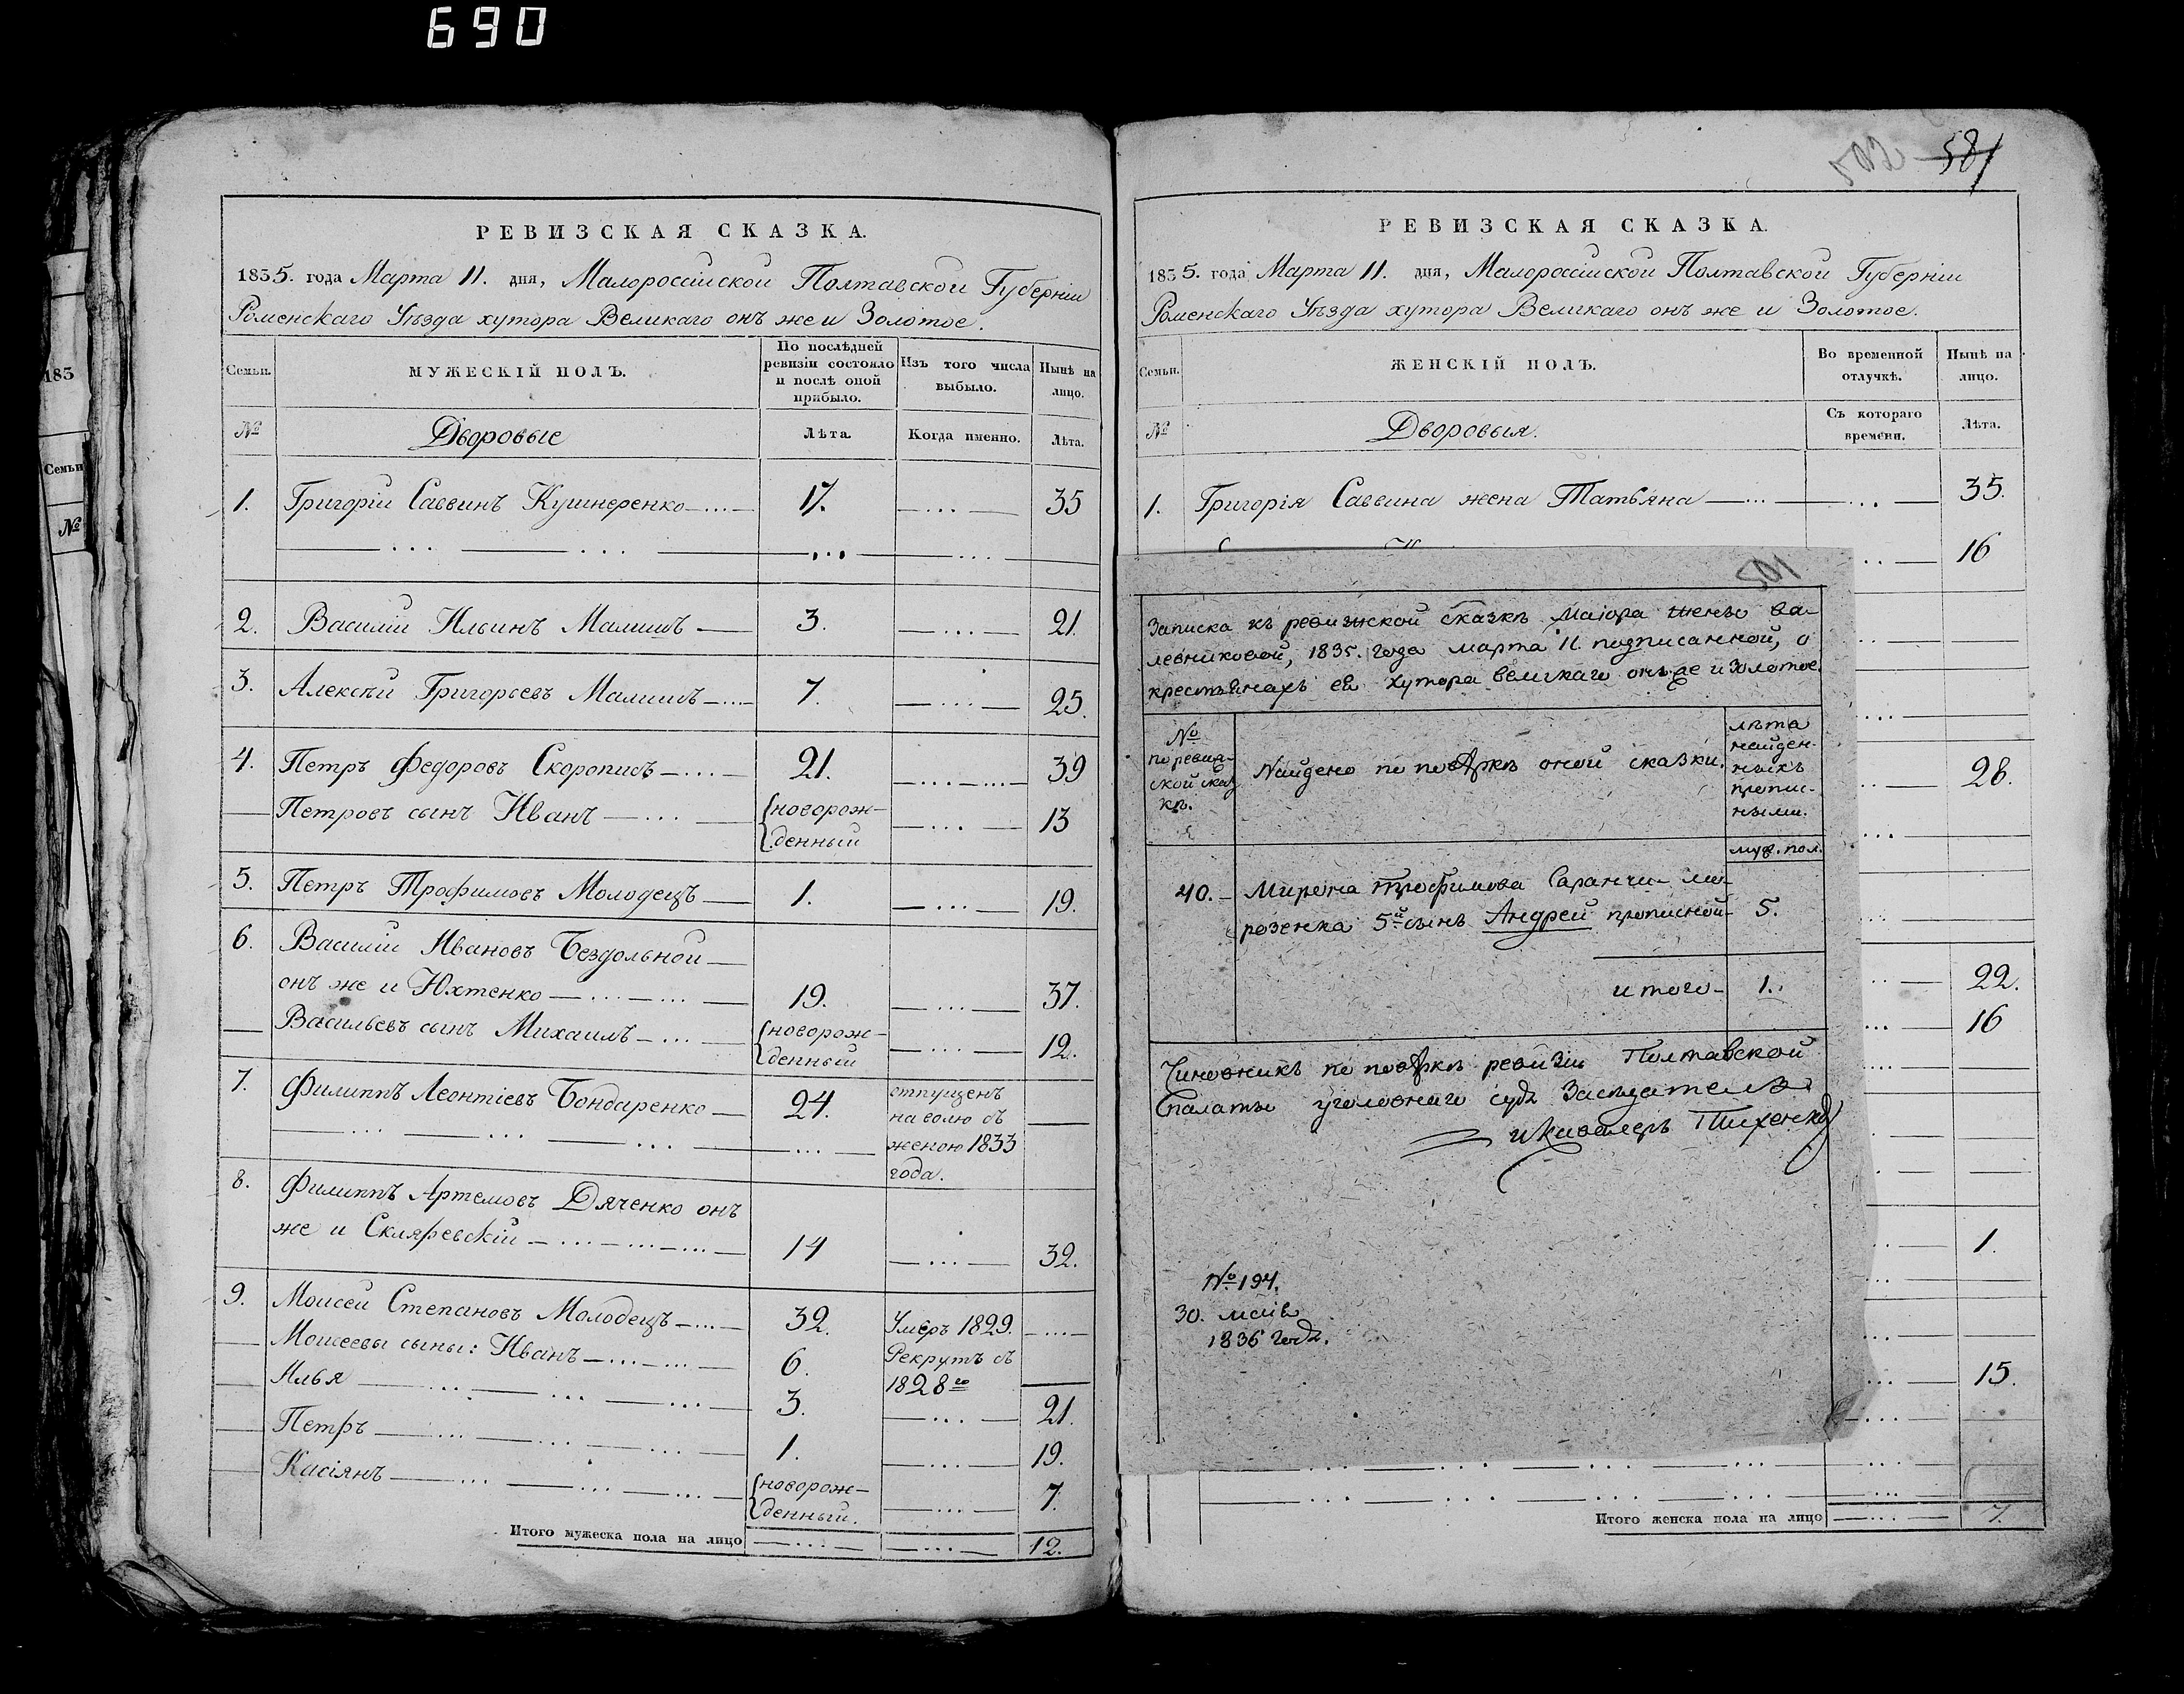 690
РЕВИЗСКАЯ СКАЗКА.
1835. года Марта 11. дня, Малороссійской Полтавской Губерніи
Роменскаго Уѣзда хутора Великаго онъ же и Золотое.
Семьи.
МУЖЕСКІЙ ПОЛЪ.
По послѣдней ревизіи состояло и послѣ оной прибыло.
Изъ того числа выбыло.
Нынѣ на лицо.
№
Дворовые
Лѣта.
Когда именно.
Лѣта.
1. Григорій Саввинъ Кушнеренко 17. 35
2. Василій Ильинъ Малишъ 3. 21.
3. Алексѣй Григорьевъ Малишъ 7. 25.
4. Петръ Федоровъ Скорописъ 21. 39
Петровъ сынъ Иванъ новорож-
денный 13
5. Петръ Трофимовъ Молодецъ 1. 19.
6. Василій Ивановъ Бездольной
онъ же и Юхтенко 19. 37.
Васильевъ сынъ Михаилъ новорож-
денный 12.
7. Филиппъ Леонтіевъ Бондаренко 24. отпущенъ
на волю съ
женою 1833
года.
8. Филиппъ Артемовъ Дяченко онъ
же и Скляревскій 14 32.
9. Моисей Степановъ Молодецъ 32. Умеръ 1829.
Моисеевы сыны: Иванъ 6. Рекрутъ съ
1828го
Илья 3. 21.
Петръ 1. 19.
Касіянъ новорож-
денный. 7.
Итого мужеска пола на лицо 12.
183
Семьи
№
502 581
РЕВИЗСКАЯ СКАЗКА.
1835. года Марта 11. дня, Малороссійской Полтавской Губерніи
Роменскаго Уѣзда хутора Великаго онъ же и Золотое.
Семьи.
ЖЕНСКІЙ ПОЛЪ.
Во временной отлучкѣ.
Нынѣ на лицо.
№
Дворовыя.
Съ котораго времени.
Лѣта.
1. Григорія Саввина жена Татьяна 35.
16
28.
22.
16
1.
15.
Итого женска пола на лицо 7.
501
Записка къ ревижской сказкѣ Маіора жены Ва-
левниковой, 1835. года марта 11. подписанной, о
крестьянахъ ея хутора Великаго онъ же и Золотое.
№
по ревиж-
ской сказ
кѣ.
Найдено по повѣркѣ оной сказки.
лѣта
найден-
ныхъ
пропис-
ными.
муж. пол.
40. Мирона Трофимова Саранчи- ми-
розенка 5й сынъ Андрей прописной 5.
итого- 1.
Чиновникъ по повѣркѣ ревизіи Полтавской
палаты уголовнаго суда Засѣдатель
и Кавалеръ Тихенко
№ 194.
30. маія
1836 года.